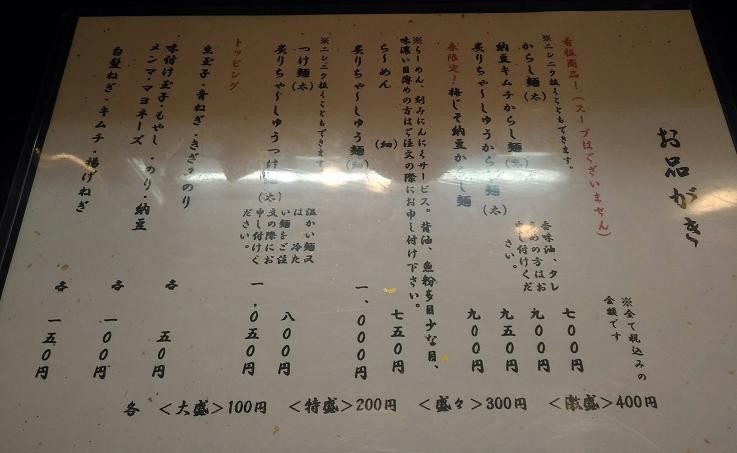 お品がき
※全て税込みの
金額です
看板商品!(スープはございません)
※ニンニク抜くこともできます。
からし麺(太) 七〇〇円
納豆キムチからし麺(太) 九〇〇円
炙りちゃ〜しゅうからし麺(太) 九五〇円
春限定!梅じそ納豆からし麺 九〇〇円
香味油、タレ
の方はお
申し付けくだ
さい。
※らーめん、刻みにんにくサービス。背油、魚粉多目少な目、
味濃い目薄めの方はご注文の際にお申し付け下さい。
ら〜めん(細) 七五〇円
炙りちゃ〜しゅう麺(細) 一、〇〇〇円
※ニンニク抜くこともできます。
つけ麺(太) 八〇〇円
炙りちゃ〜しゅうつけ麺(太) 一、〇五〇円
温かい麺又
は、冷た
い麺をご注
文の際にお
申し付けく
ださい。
トッピング
生玉子・青ねぎ・きざみのり 各 五〇円
味付け玉子・もやし・のり・納豆
メンマ・マヨネーズ 各 一〇〇円
白髪ねぎ・キムチ・揚げねぎ 各 一五〇円
各 <大盛>100円 <特盛>200円 <盛々>300円 <激盛>400円